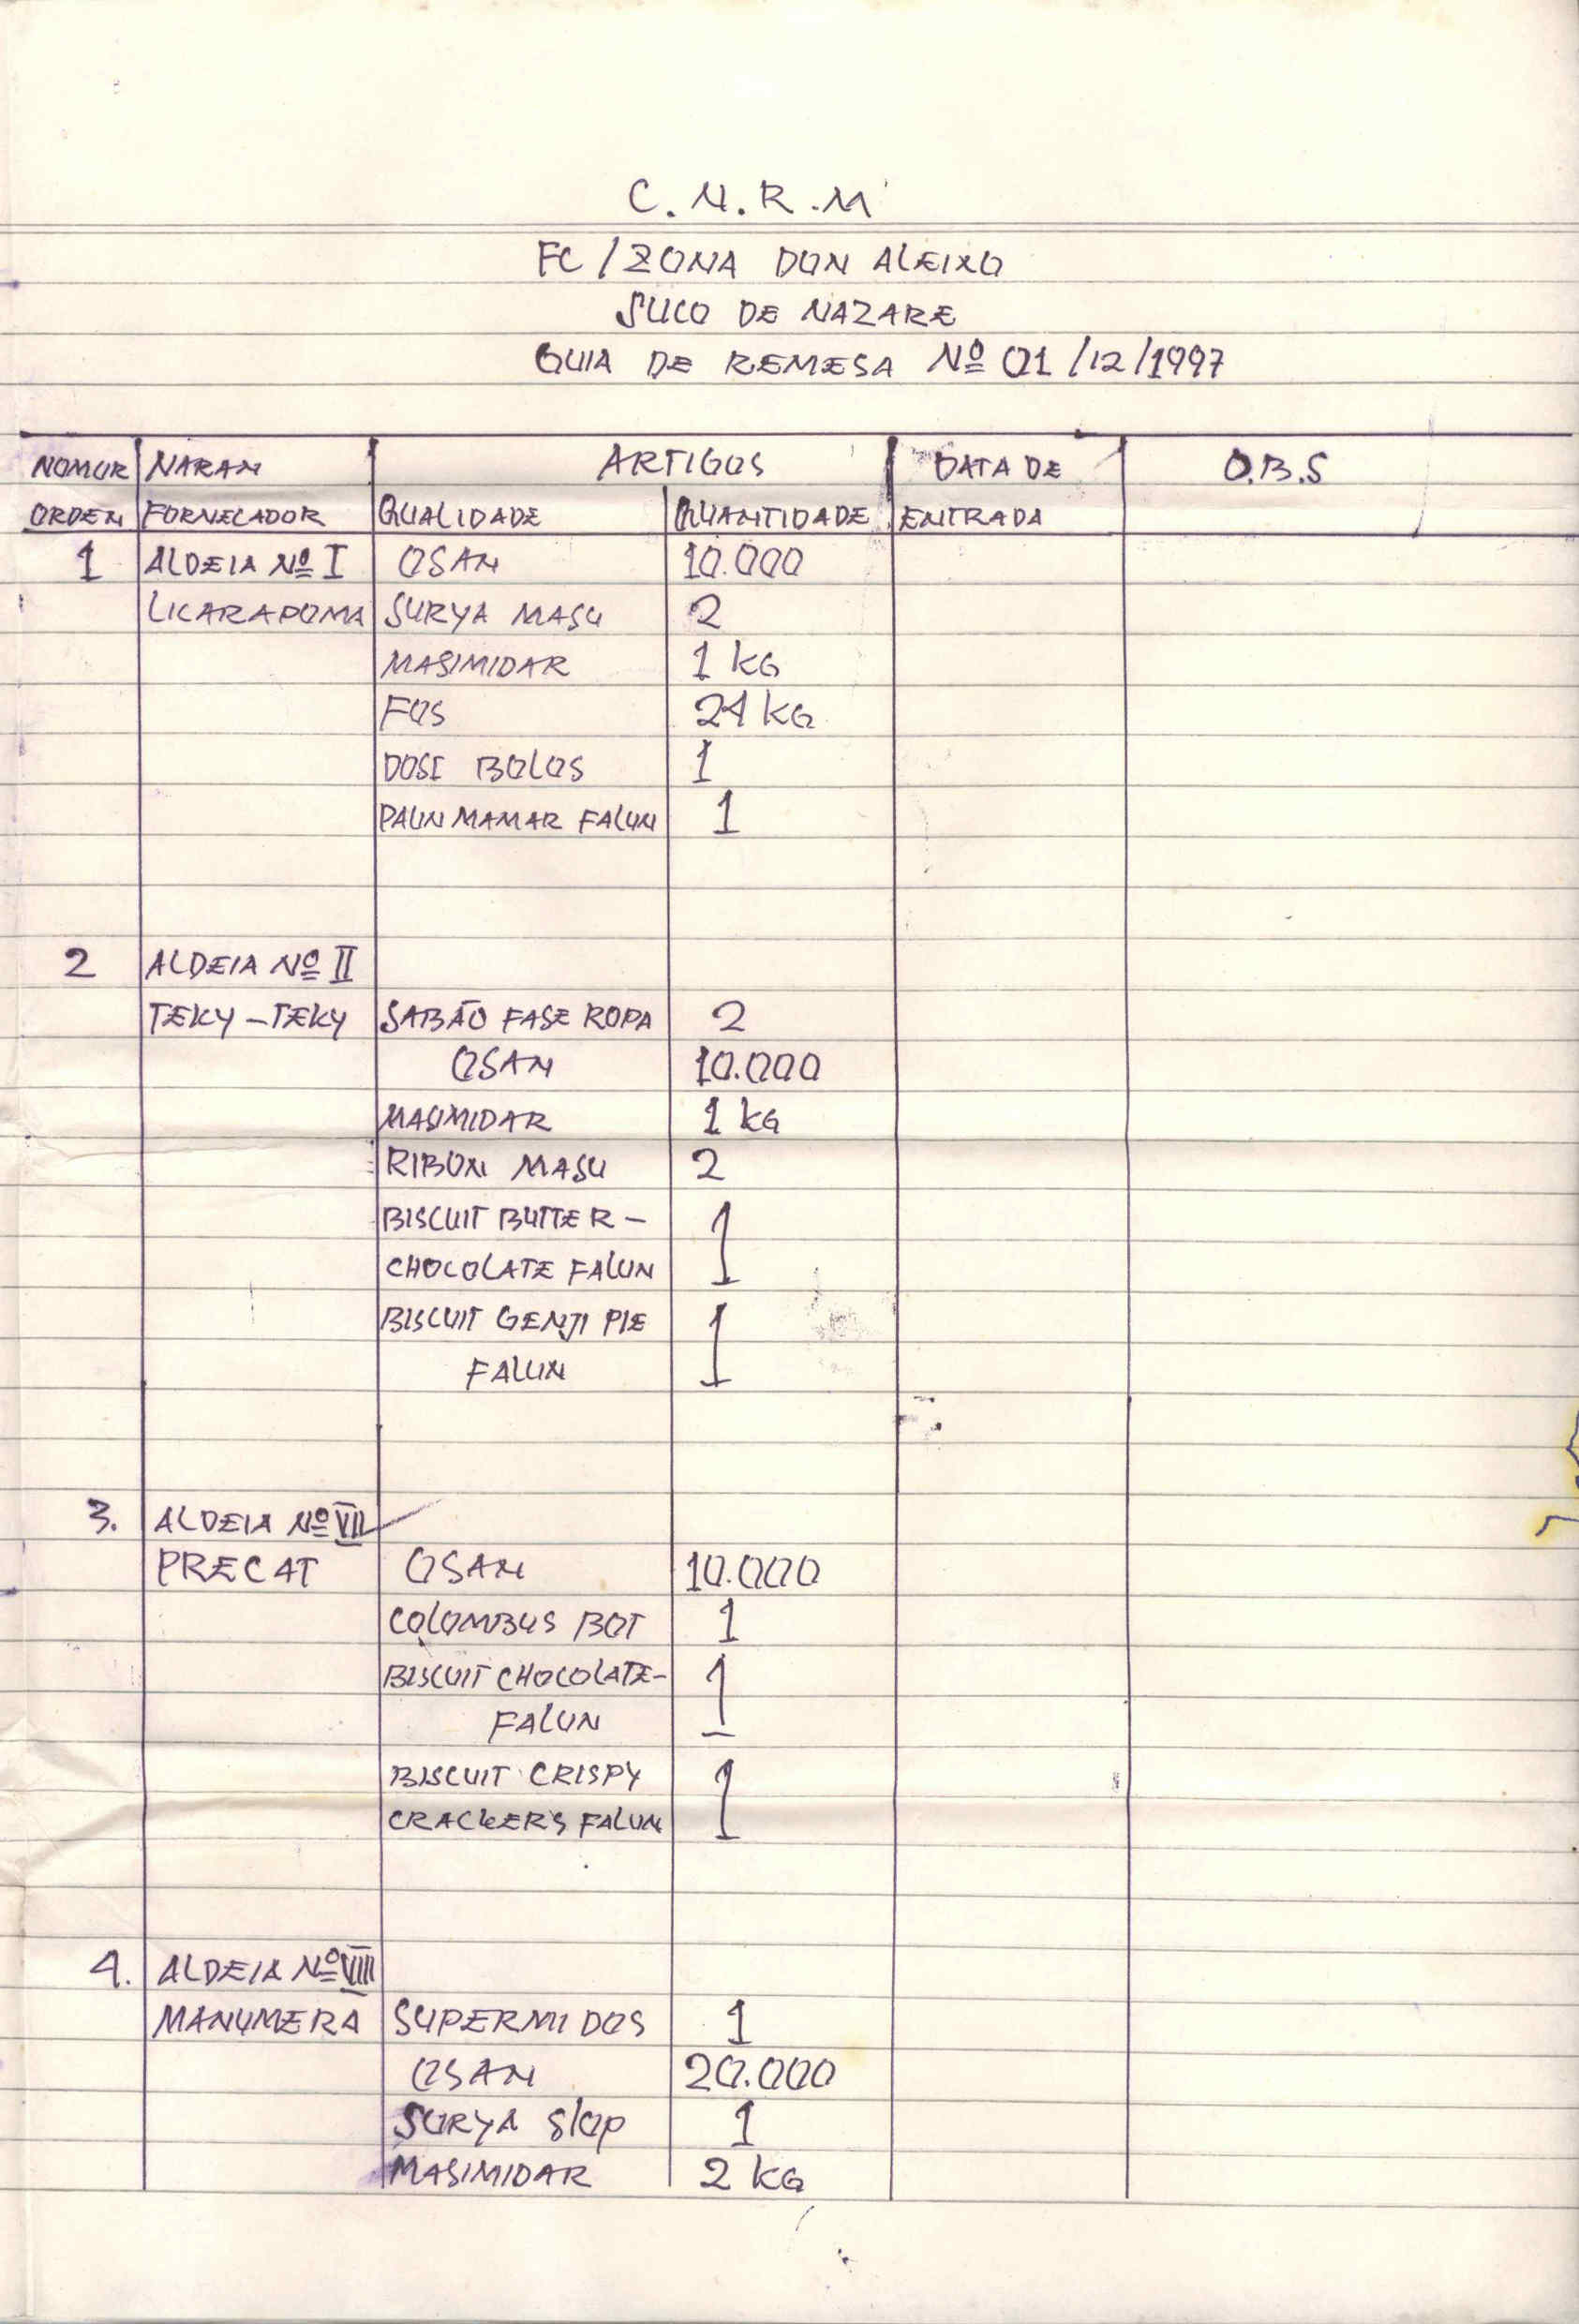 C.N.R.M
FC/ZONA DON ALEIXO
SUCO DE NAZARE
GUIA DE REMESA Nº 01/12/1997
NOMOR NARAN ARTIGOS DATA DE O.B.S
ORDEN FORNECADOR QUALIDADE QUANTIDADE ENTRADA
1 ALDEIA Nº I OSAN 10.000
LICARAPOMA SURYA MASU 2
MASIMIDAR 1 KG
FOS 24 KG
DOSI BOLOS 1
PAUN MAMAR FALUN 1
2 ALDEIA Nº II
TEKY-TEKY SABÃO FASE ROPA 2
OSAN 10.000
MASIMIDAR 1 KG
RIBON MASU 2
BISCUIT BUTTER- 1
CHOCOLATE FALUN
BISCUIT GENJI PIE 1
FALUN
3. ALDEIA Nº VII
PRECAT OSAN 10.000
COLOMBUS BOT 1
BISCUIT CHOCOLATE- 1
FALUN
BISCUIT CRISPY 1
CRACKERS FALUN
4. ALDEIA Nº VIII
MANUMERA SUPERMI DOS 1
OSAN 20.000
SURYA slop 1
MASIMIDAR 2 KG